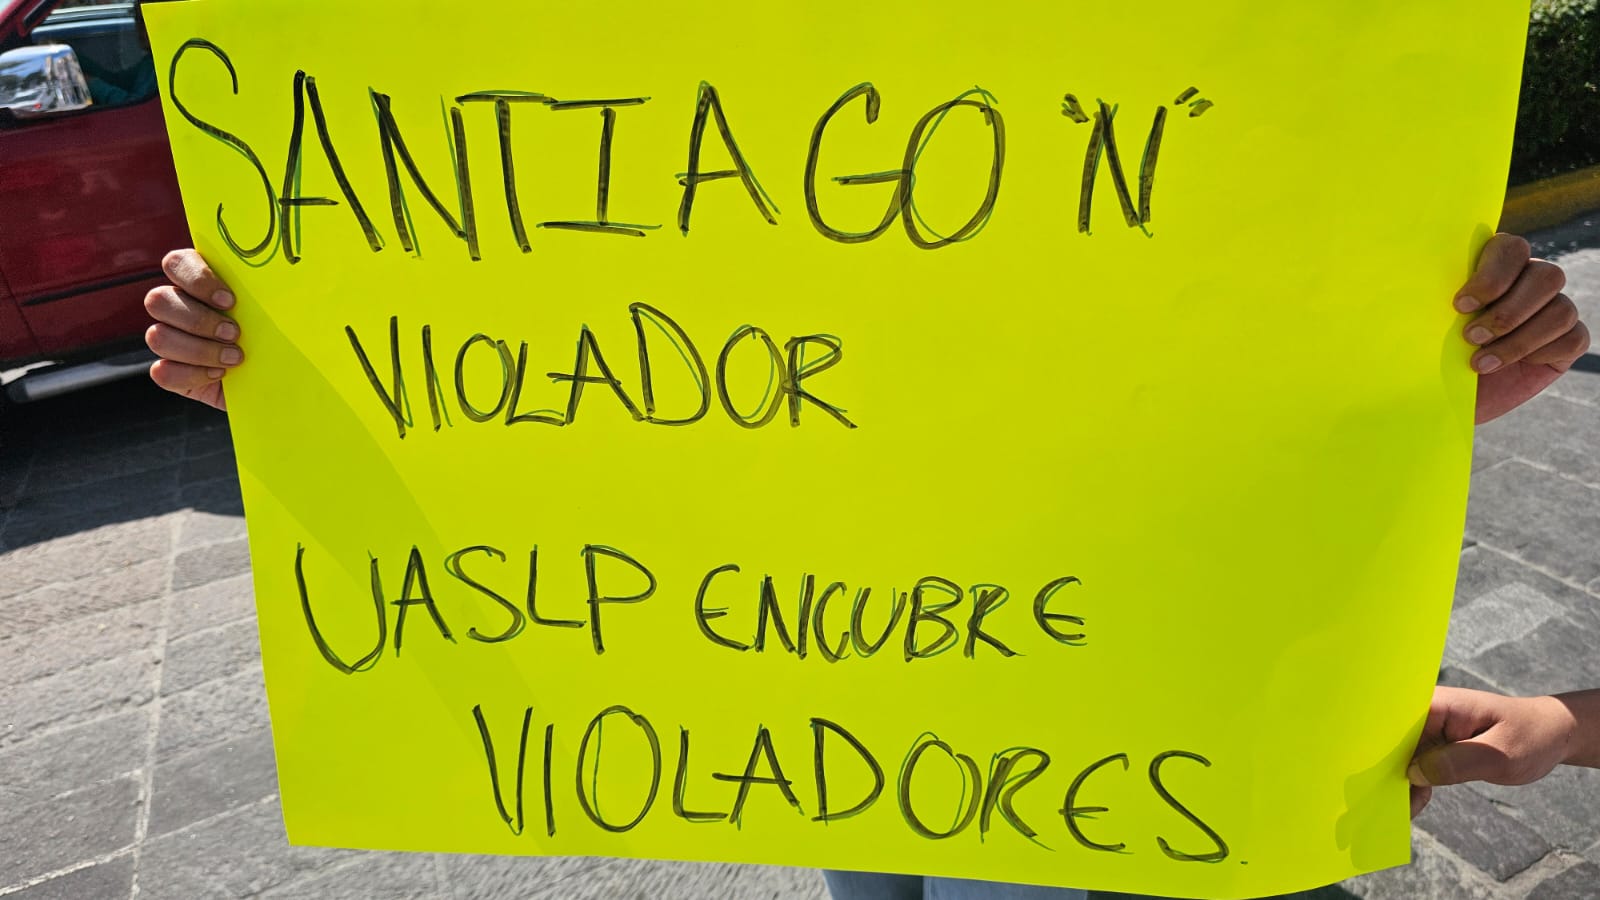 SANTIAGO "N"
VIOLADOR
UASLP ENCUBRE
VIOLADORES.